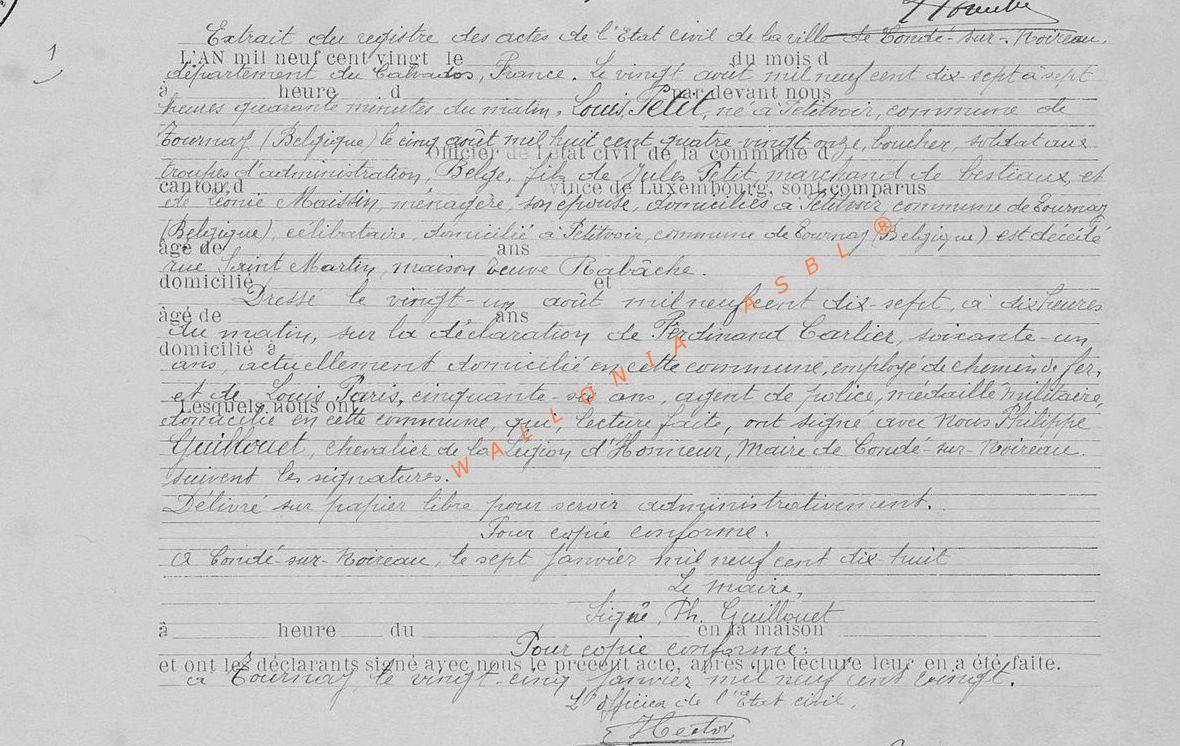 Extrait du registre des actes de l'Etat civil de la ville de Condé-sur-Noireau,
1
L'AN mil neuf cent vingt le du mois d
département du Calvados, France. Le vingt août mil neuf cent dix-sept à sept
à heure d par devant nous
heures quarante minutes du matin, Louis Petit, né à Petitvoir, commune de
Tournay (Belgique) le cinq août mil huit cent quatre-vingt onze, boucher, soldat aux
officier de l'état civil de la commune d
troupes d'administration, Belge, fils de Jules Petit, marchand de bestiaux, et
canton d province de Luxembourg, sont comparus
de Léonie Maissin, ménagère, son épouse, domiciliés à Petitvoir, commune de Tournay
(Belgique), célibataire, domicilié à Petitvoir, commune de Tournay (Belgique) est décédé
âgé de ans
rue Saint Martin, maison Veuve Rabâche.
domicilié et
Dressé le vingt-un août mil neuf cent dix-sept, à dix heures
âgé de ans
du matin, sur la déclaration de Ferdinand Carlier, soixante-un
domicilié à
ans, actuellement domicilié en cette commune, employé de chemin de fer,
et de Louis Paris, cinquante-six ans, agent de police, médaillé militaire,
Lesquels nous ont
domicilié en cette commune, qui, lecture faite, ont signé avec Nous Philippe
Guillouet, chevalier de la Légion d'Honneur, Maire de Condé-sur-Noireau.
suivent les signatures.
WALLONIA ASBL ®
Délivré sur papier libre pour servir administrativement.
Pour copie conforme:
A Condé-sur-Noireau, le sept Janvier mil neuf cent dix huit
Le maire,
Signé, Ph. Guillouet
à heure du en la maison
Pour copie conforme:
et ont les déclarants signé avec nous le présent acte, après que lecture leur en a été faite.
à Tournay, le vingt-cinq Janvier mil neuf cent vingt.
L'Officier de l'Etat civil,
Hector